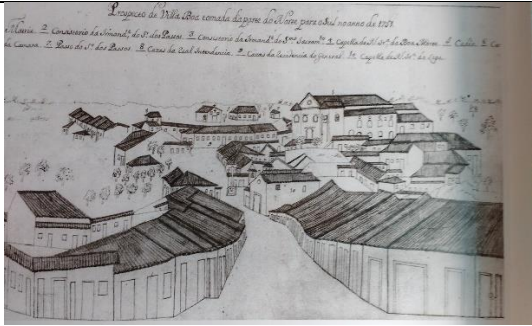 Prospecto de Villa Boa tomada da parte do Norte para o Sul no anno de 1751
Matriz 2 Consistorio da Irmand.e do S.r dos Passos 3 Consistorio da Irmand.e do S.mo Sacram.to 4 Capella de N. Sr.a da Boa Morte 5 Cadia 6 Caza
da Camara 7 Passo do S.r dos Passos 8 Cazas da Real Intendencia 9 Cazas da Rezidencia do General 10 Capella de N. Sr.a da Lapa